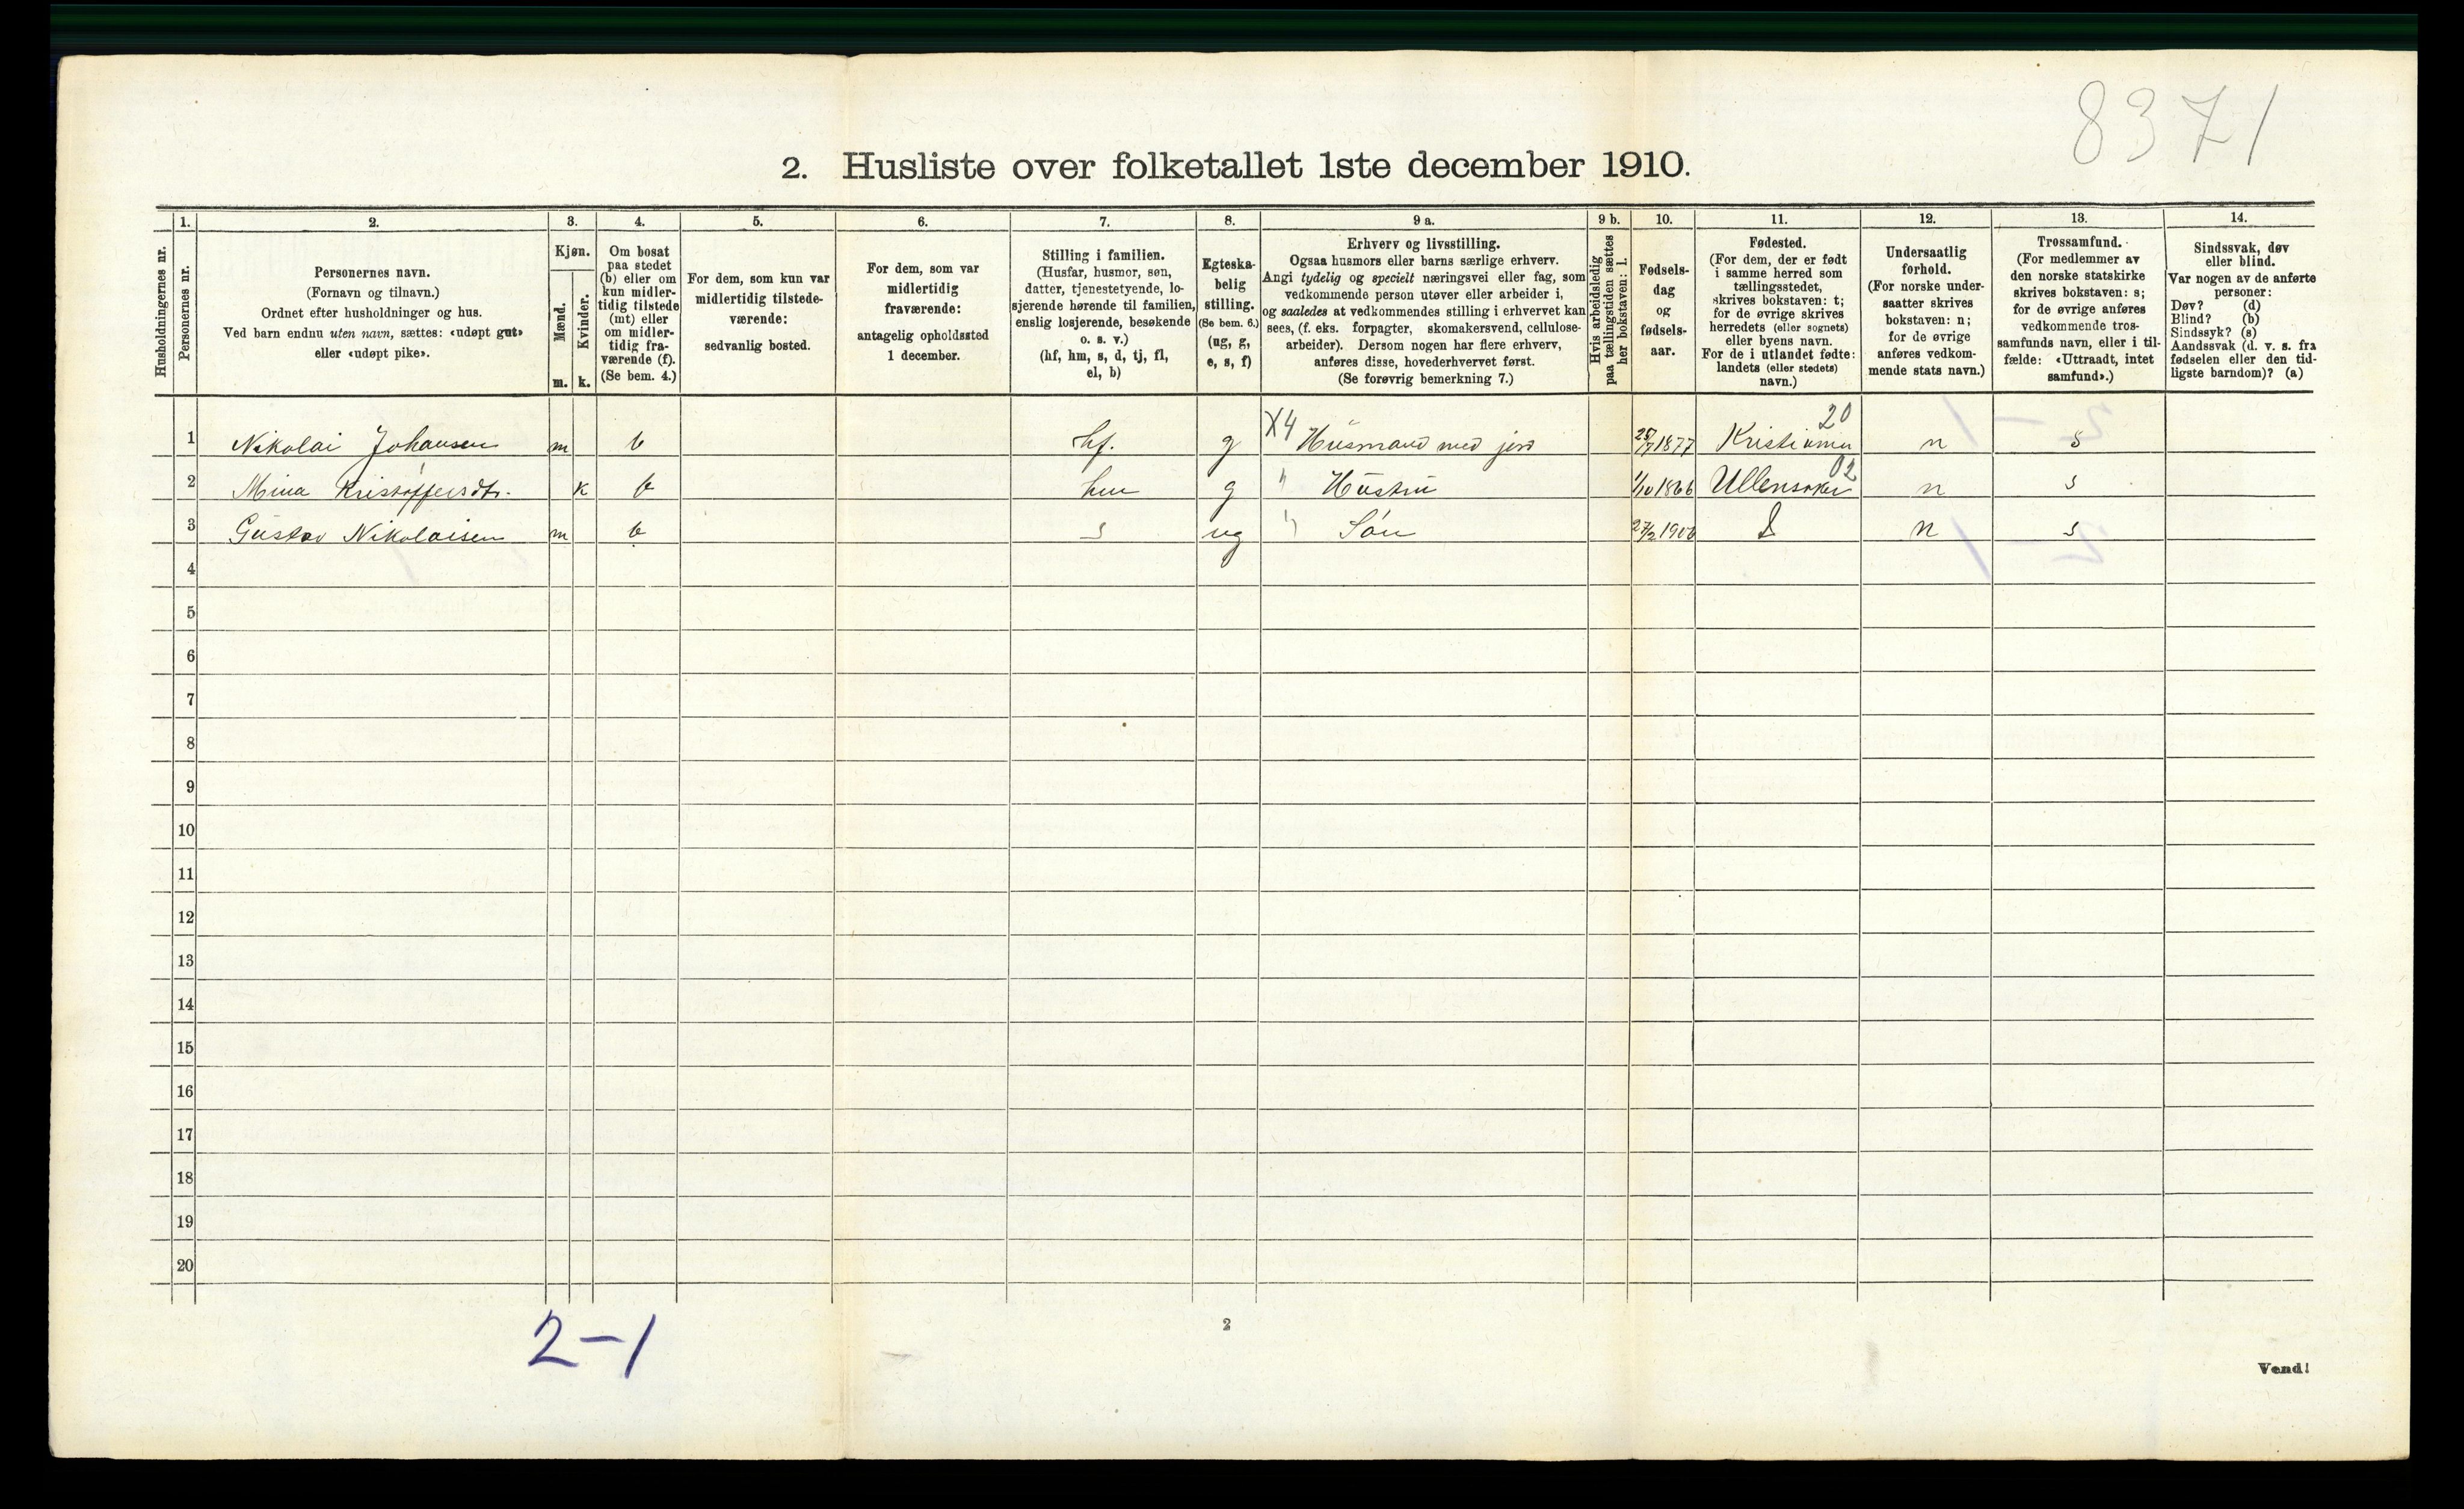 8371
2. Husliste over folketallet 1ste december 1910.
Husholdningernes nr.
1.
Personernes nr.
2.
Personernes navn.
(Fornavn og tilnavn.)
Ordnet efter husholdninger og hus.
Ved barn endnu uten navn, sættes: «udøpt gut»
eller «udøpt pike».
3.
Kjøn.
Mænd.
Kvinder.
m. k.
4.
Om bosat
paa stedet
(b) eller om
kun midler-
tidig tilstede
(mt) eller
om midler-
tidig fra-
værende (f).
(Se bem. 4.)
5.
For dem, som kun var
midlertidig tilstede-
værende:
sedvanlig bosted.
6.
For dem, som var
midlertidig
fraværende:
antagelig opholdssted
1 december.
7.
Stilling i familien.
(Husfar, husmor, søn,
datter, tjenestetyende, lo-
sjerende hørende til familien,
enslig losjerende, besøkende
o. s. v.)
(hf, hm, s, d, tj, fl,
el, b)
8.
Egteska-
belig
stilling.
(Se bem. 6.)
(ug, g,
e, s, f)
9 a.
Erhverv og livsstilling.
Ogsaa husmors eller barns særlige erhverv.
Angi tydelig og specielt næringsvei eller fag, som
vedkommende person utøver eller arbeider i,
og saaledes at vedkommendes stilling i erhvervet kan
sees, (f. eks. forpagter, skomakersvend, cellulose-
arbeider). Dersom nogen har flere erhverv,
anføres disse, hovederhvervet først.
(Se forøvrig bemerkning 7.)
9 b.
Hvis arbeidsledig
paa tællingstiden sættes
her bokstaven: l.
10.
Fødsels-
dag
og
fødsels-
aar.
11.
Fødested.
(For dem, der er født
i samme herred som
tællingsstedet,
skrives bokstaven: t;
for de øvrige skrives
herredets (eller sognets)
eller byens navn.
For de i utlandet fødte:
landets (eller stedets)
navn.)
12.
Undersaatlig
forhold.
(For norske under-
saatter skrives
bokstaven: n;
for de øvrige
anføres vedkom-
mende stats navn.)
13.
Trossamfund.
(For medlemmer av
den norske statskirke
skrives bokstaven: s;
for de øvrige anføres
vedkommende tros-
samfunds navn, eller i til-
fælde: «Uttraadt, intet
samfund».)
14.
Sindssvak, døv
eller blind.
Var nogen av de anførte
personer:
Døv? (d)
Blind? (b)
Sindssyk? (s)
Aandssvak (d. v. s. fra
fødselen eller den tid-
ligste barndom)? (a)
1 Nikolai Johansen m b hf. g X4 Husmand med jord 25/7 1877 Kristiania 20 n s
2 Mina Kristoffersdtr. k b hm g " Hustru 1/10 1866 Ullensaker 02 n s
3 Gustav Nikolaisen m b s ug " Søn 27/2 1906 n s
4
5
6
7
8
9
10
11
12
13
14
15
16
17
18
19
20
2-1
2
Vend!